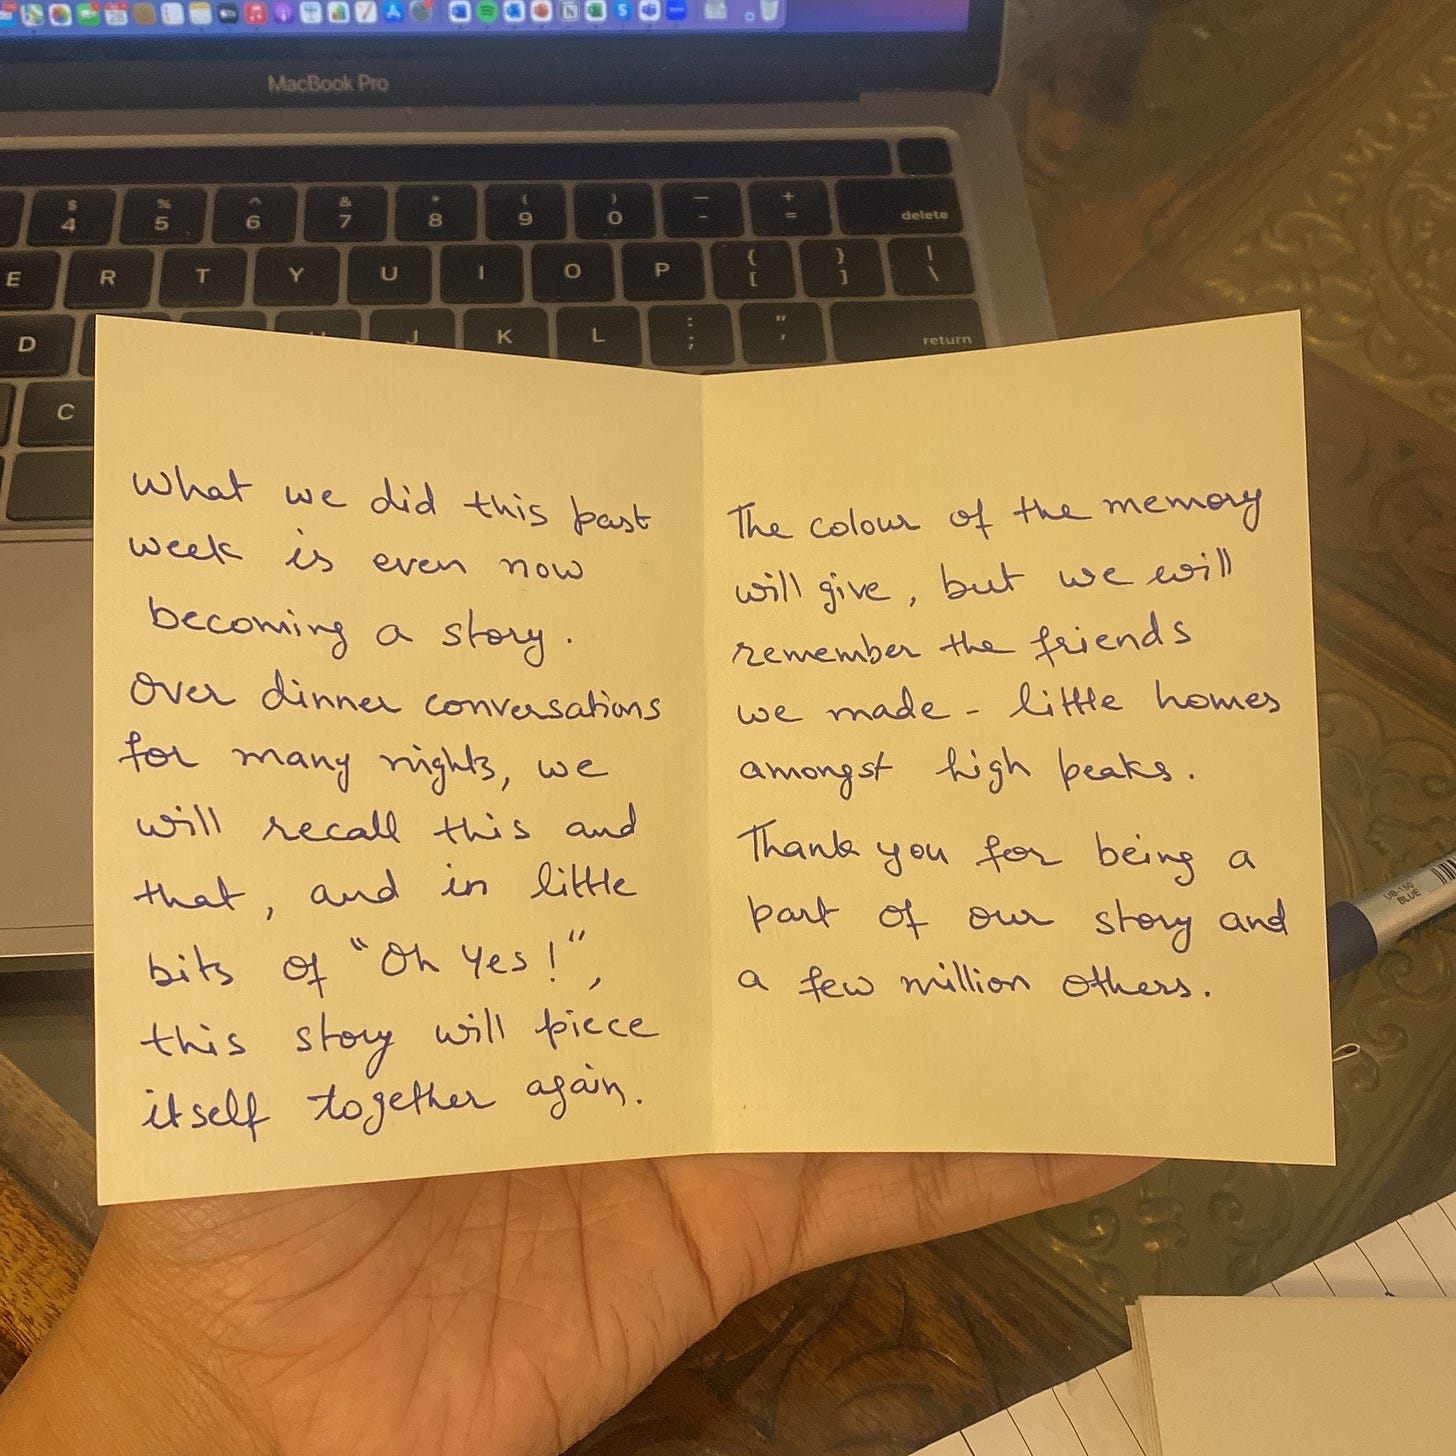 MacBook Pro
$ % ^ & * ( ) — +
4 5 6 7 8 9 0 - = delete
E R T Y U I O P { [ } ] | \
D J K L : ; " ' return
C
What we did this past
week is even now
becoming a story.
Over dinner conversations
for many nights, we
will recall this and
that, and in little
bits of "Oh Yes!",
this story will piece
itself together again.
The colour of the memory
will give, but we will
remember the friends
we made - little homes
amongst high peaks.
Thank you for being a
part of our story and
a few million others.
UB-150
BLUE